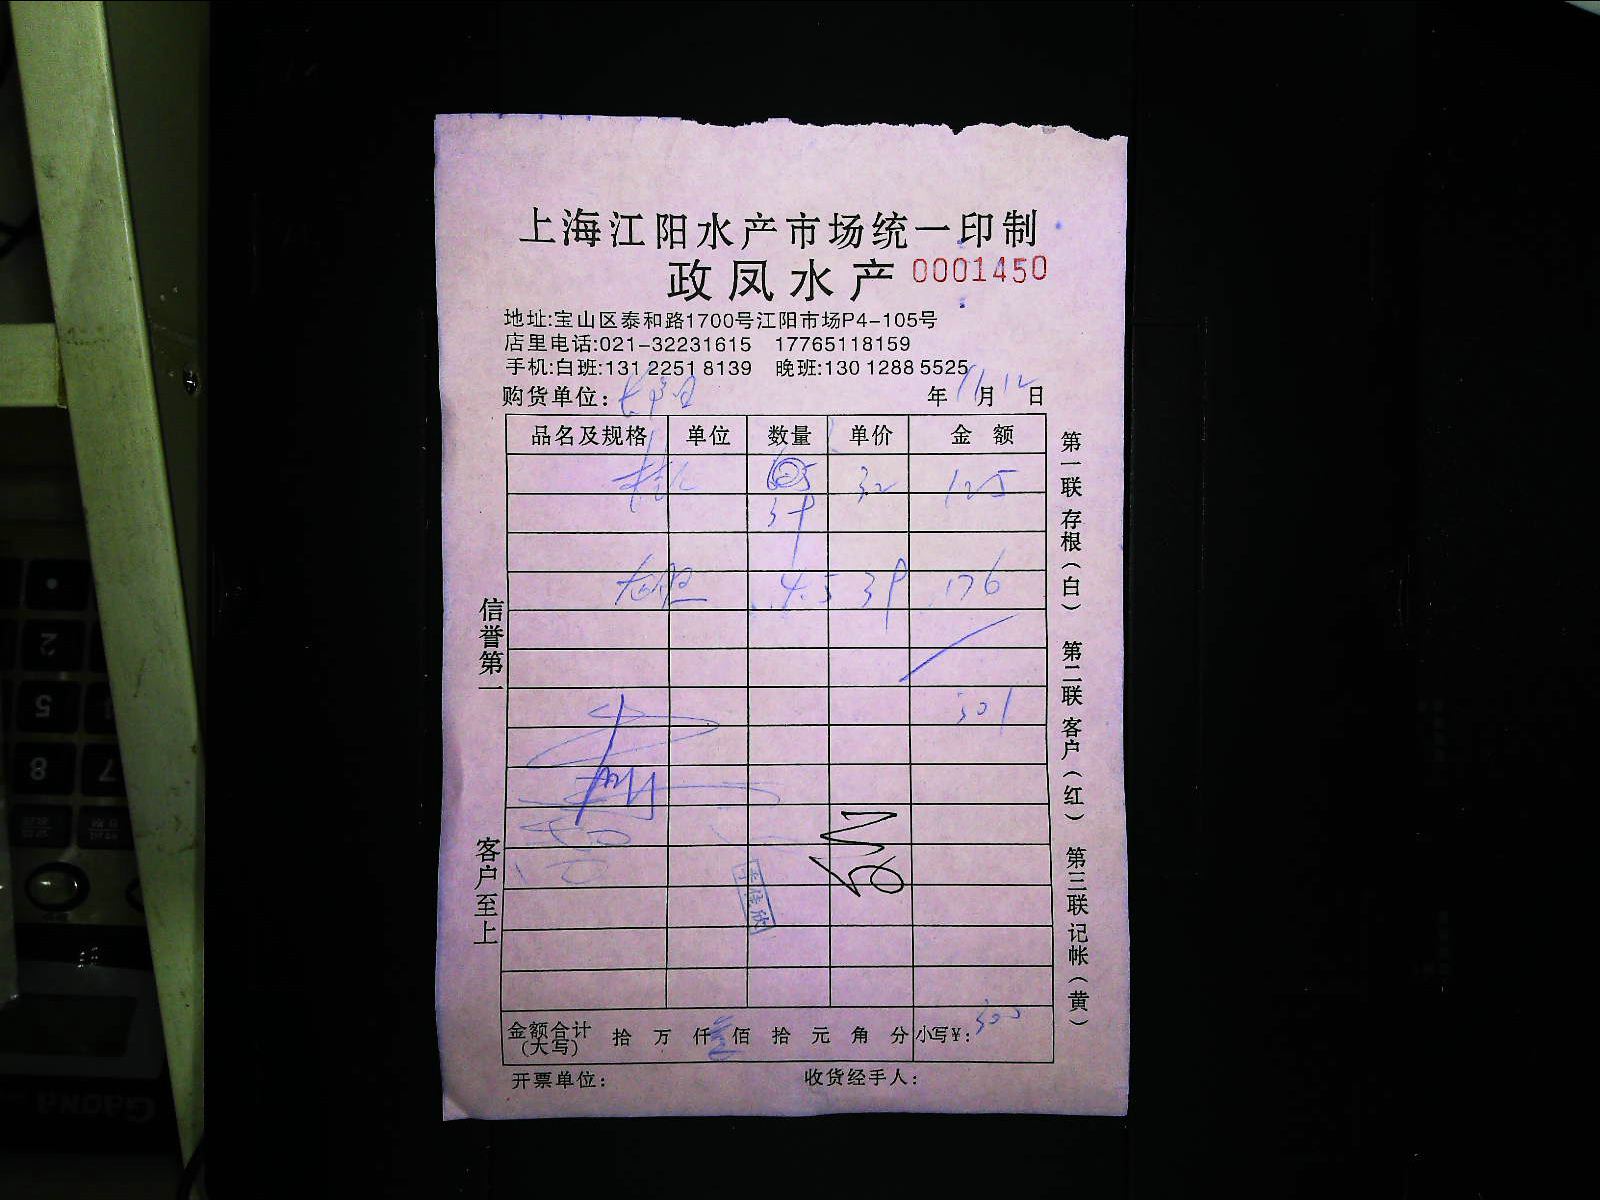 上海江阳水产市场统一印制
政凤水产 0001450
地址:宝山区泰和路1700号江阳市场P4-105号
店里电话:021-32231615 17765118159
手机:白班:131 2251 8139 晚班:130 1288 5525
购货单位: 年 11 月 12 日
品名及规格 单位 数量 单价 金额
32 125
4.5 39 176
301
金额合计(大写) 拾 万 仟 叁 佰 拾 元 角 分 小写¥: 300
开票单位: 收货经手人:
信誉第一
客户至上
第一联存根(白)
第二联客户(红)
第三联记帐(黄)
2
5
8
7